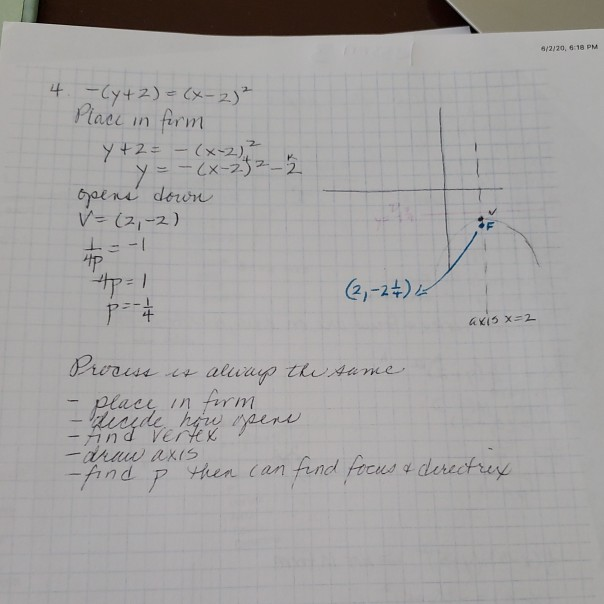 6/2/20, 6:18 PM
4. -(y+2) = (x-2)²
Place in form
y+2 = -(x-2)²
h k
y = -(x-2)² - 2
opens down
V = (2, -2)
1/4p = -1
-4p = 1
p = -1/4
V
F
(2, -2 1/4)
axis x=2
Process is always the same
- place in form
- decide how opens
- find vertex
- draw axis
- find p then can find focus & directrix